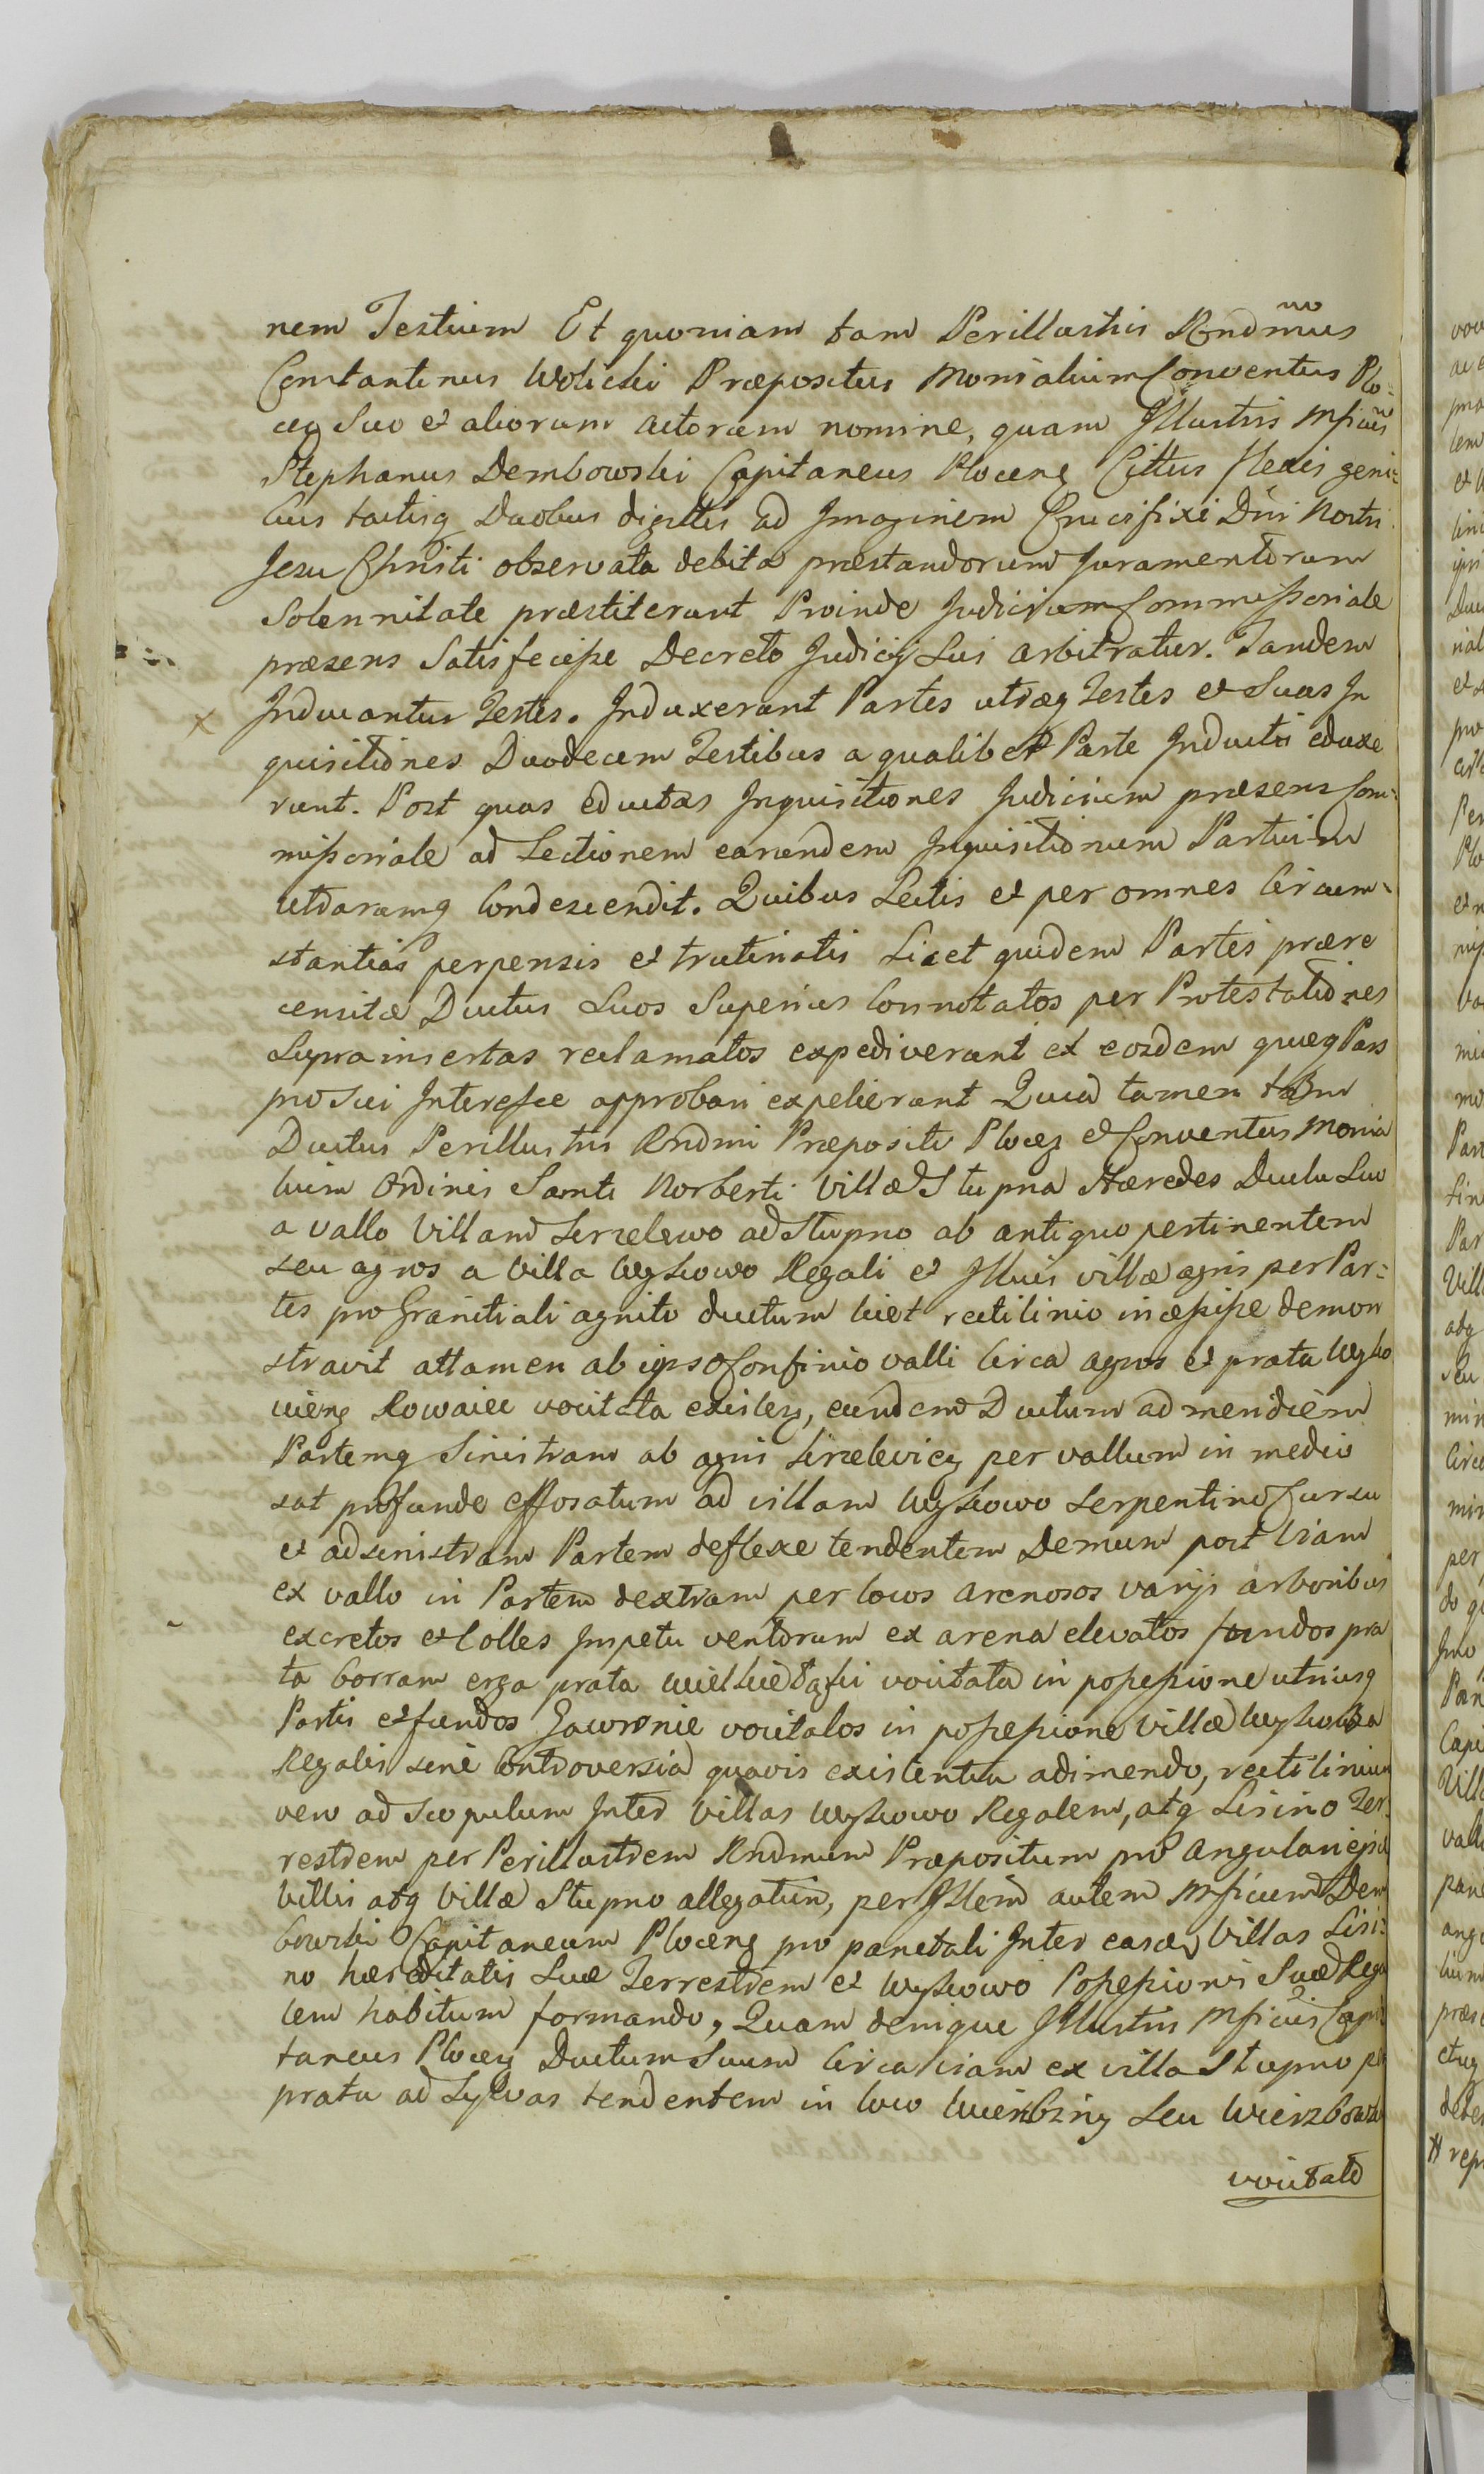 nem Testium Et quoniam tam Perillustris Rndmus
Constantinus Wolicki Præpositus Monialium Conventus Plo-
cen Suo et aliorum Actorum nomine, quam Illustris Mficus
Stephanus Dembowski Capitaneus Plocens Cittus flexis geni-
bus tactisq Duobus digitis ad Imaginem Crucifixi Dni Nostri
Jesu Christi observata debita præstandorum Juramentorum
Solennitate præstiterunt Proinde Judicium Commissoriale
præsens Satisfecisse Decreto Judicij Sui arbitratur. Tandem
x Inducantur Testes. Induxerunt Partes utræq Testes et Suas In
quisitiones Duodecem Testibus a qualibet Parte Inductis eduxe
runt. Post quas eductas Inquisitiones Judicium præsens Com-
missoriale ad Lectionem earundem Inquisitionum Partium
utrarumq Condescendit. Quibus Lectis et per omnes Circum-
stantias perpensis et trutinatis Licet quidem Partes prære
censitæ Ductus Suos Superius Connotatos per Protestationes
Suprainsertas reclamatos expediverunt et eosdem quæq Pars
pro Sui Interesse approbari expetierunt Quia tamen tam
Ductus Perillustris Rndmi Præpositi Plocen et Conventus Monia
lium Ordinis Sancti Norberti Villæ Stupna Hæredes Ductu Suo
a vallo Villam Sirzelewo ad Stupno ab antiquo pertinentem
seu agros a Villa Wykowo Regali et Illius villæ agris per Par-
tes pro Granitiali agnito ductum licet rectilinio incæpisse demon
stravit attamen ab ipso Confinio valli Circa agros et prata Wyko
viens Rowaiec vocitata existen, eundem Ductum ad meridiem
Partemq Sinistram ab agris Sirzelevicen per vallum in medio
sat profunde effosatum ad villam Wykowo Serpentino Cursu
et ad sinistram Partem deflexe tendentem Demum post viam
ex vallo in Partem dextram per locos arenosos varijs arboribus
excretos et Colles Impetu ventorum ex arena elevatos fundos pra
ta borram erga prata vocitata in possessione utriusq
Partis et fundos Gawronie vocitatos in possessione Villæ Wykowa
Regalis sine Controversia quavis existentia adimendo, rectilinium
vero ad Scopulum Inter Villas Wykowo Regalem, atq Lisino Ter-
restrem per Perillustrem Rndmum Præpositum pro Angulari ejsd
Villis atq Villæ Stupno allegatum, per Illem autem Mficum Dem
bowski Capitaneum Plocens pro parietali Inter easdem Villas Lisi-
no hæreditatis Suæ Terrestrem et Wykowo Possessionis Suæ Rega
lem habitum formando, Quam denique Illustris Mficus Capi
taneus Plocen Ductum Suum Circa viam ex villa Stupno per
prata ad Sylvas tendentem in loco Wierzbiny Seu Wierzbowa
vocitato